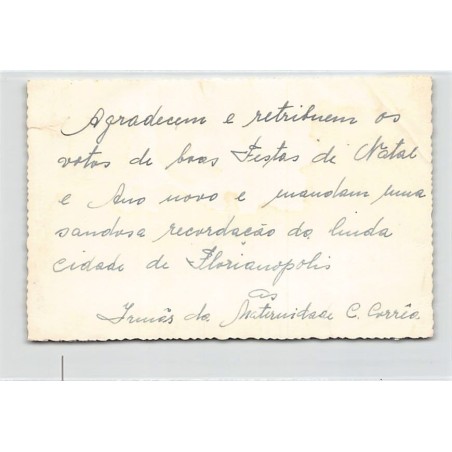 Agradecem e retribuem os
votos de boas Festas de Natal
e Ano novo e mandam uma
saudosa recordação da linda
cidade de Florianopolis
as
Irmãs da Maternidade C. Corrêa.